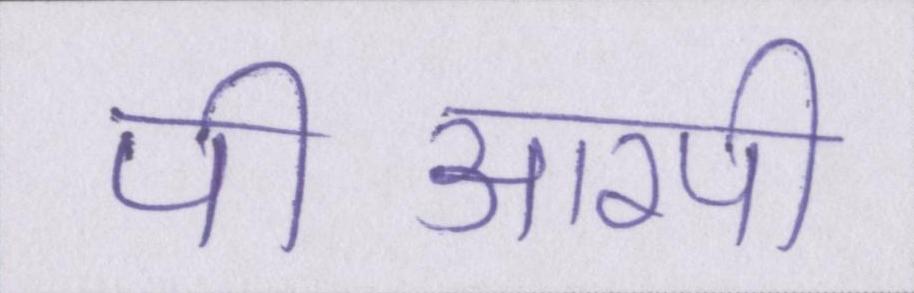 पी आरपी